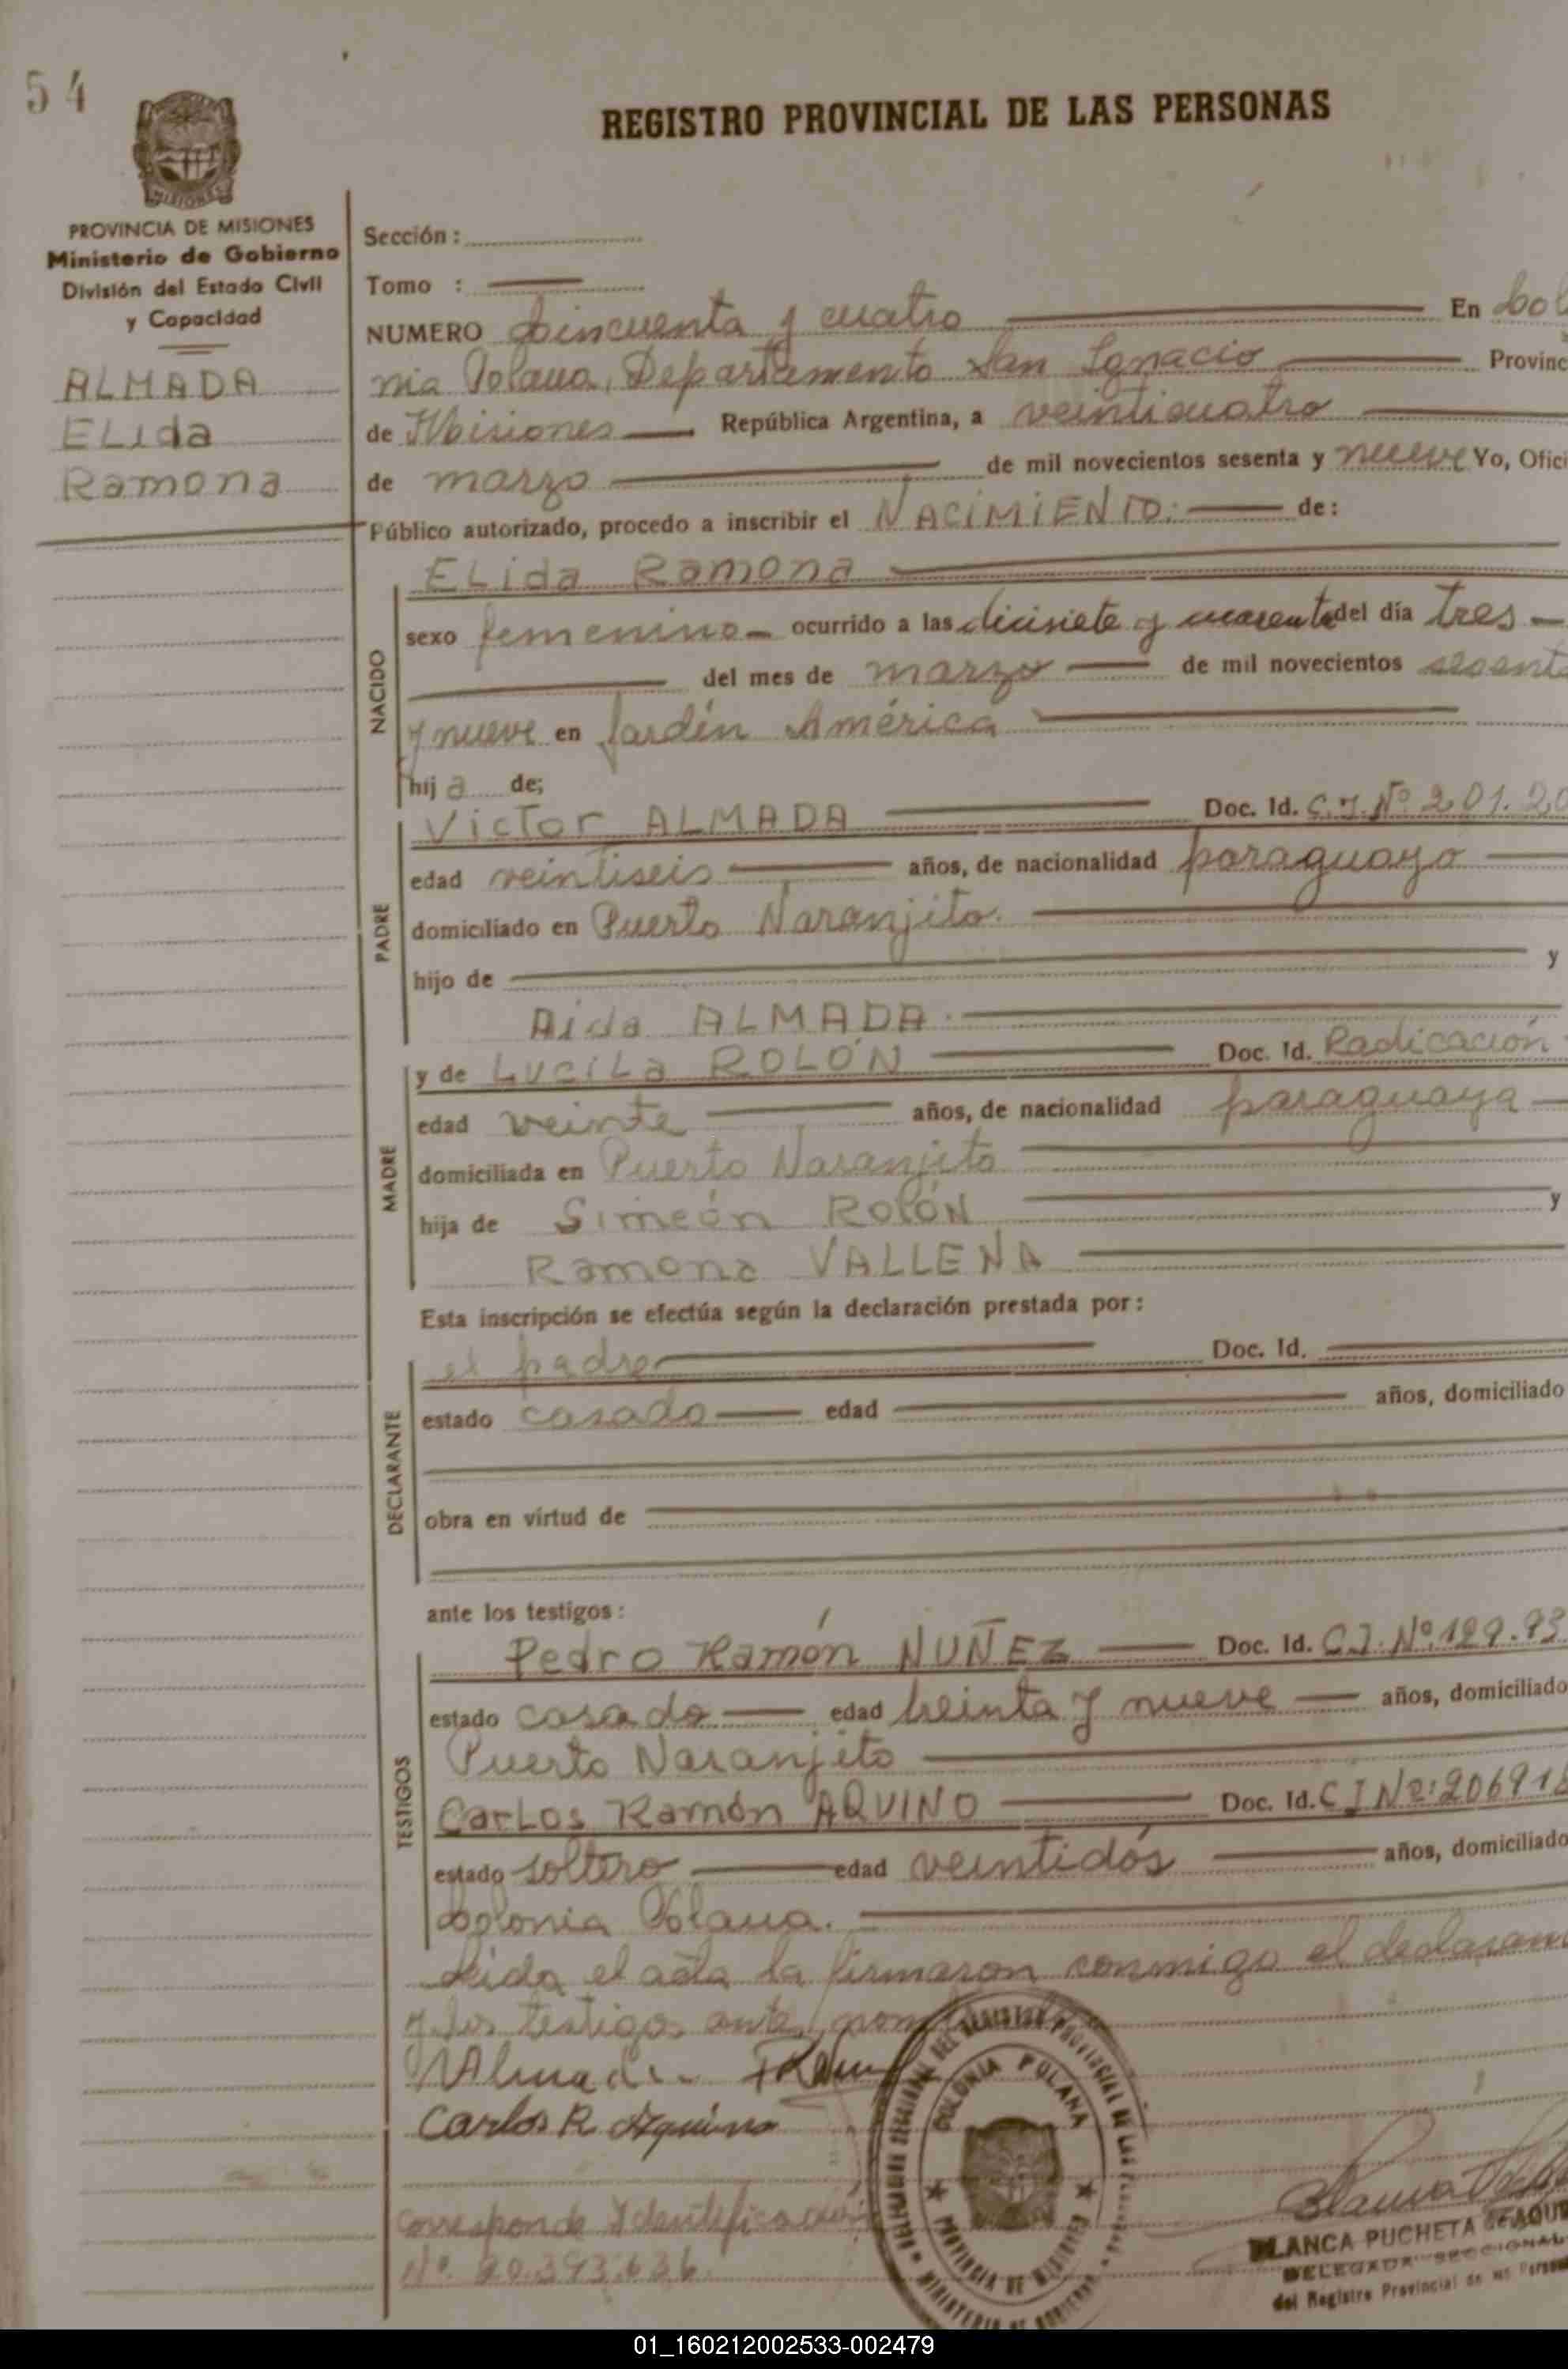 54
REGISTRO PROVINCIAL DE LAS PERSONAS
MISIONES
PROVINCIA DE MISIONES
Ministerio de Gobierno
División del Estado Civil
y Capacidad
ALMADA
ELida
Ramona
Sección :
Tomo :
NUMERO Cincuenta y cuatro En Colo
nia Polana, Departamento San Ignacio Provinc
de Misiones República Argentina, a veinticuatro
de marzo de mil novecientos sesenta y nueve Yo, Ofici
Público autorizado, procedo a inscribir el NACIMIENTO: de:
ELida Ramona
NACIDO
sexo femenino ocurrido a las diecisiete y cuarenta del día tres
del mes de marzo de mil novecientos sesenta
y nueve en Jardín América
hij a de;
PADRE
Victor ALMADA Doc. Id. C.I. Nº 201.20
edad veintiseis años, de nacionalidad paraguayo
domiciliado en Puerto Naranjito.
hijo de y
Aida ALMADA.
MADRE
y de LuciLa ROLÓN Doc. Id. Radicación
edad veinte años, de nacionalidad paraguaya
domiciliada en Puerto Naranjito
hija de Simeón ROLÓN y
Ramona VALLENA
Esta inscripción se efectúa según la declaración prestada por :
DECLARANTE
el padre Doc. Id.
estado casado edad años, domiciliado
obra en virtud de
ante los testigos :
TESTIGOS
Pedro Ramón NUÑEZ Doc. Id. C.I. Nº 129.93
estado casado edad treinta y nueve años, domiciliado
Puerto Naranjito
CarLos Ramón AQUINO Doc. Id. C I Nº: 206918
estado soltero edad veintidós años, domiciliado
Colonia Polana.
Leida el acta la firmaron conmigo el declaran
y los testigos ante
Almada
Carlos R. Aquino
COLONIA POLANA
PROVINCIA DE MISIONES
MINISTERIO DE GOBIERNO
Corresponde Identificación
Nº. 20.393.636.
BLANCA PUCHETA de AQUI
DELEGADA SECCIONAL
del Registro Provincial de las Person
01_160212002533-002479